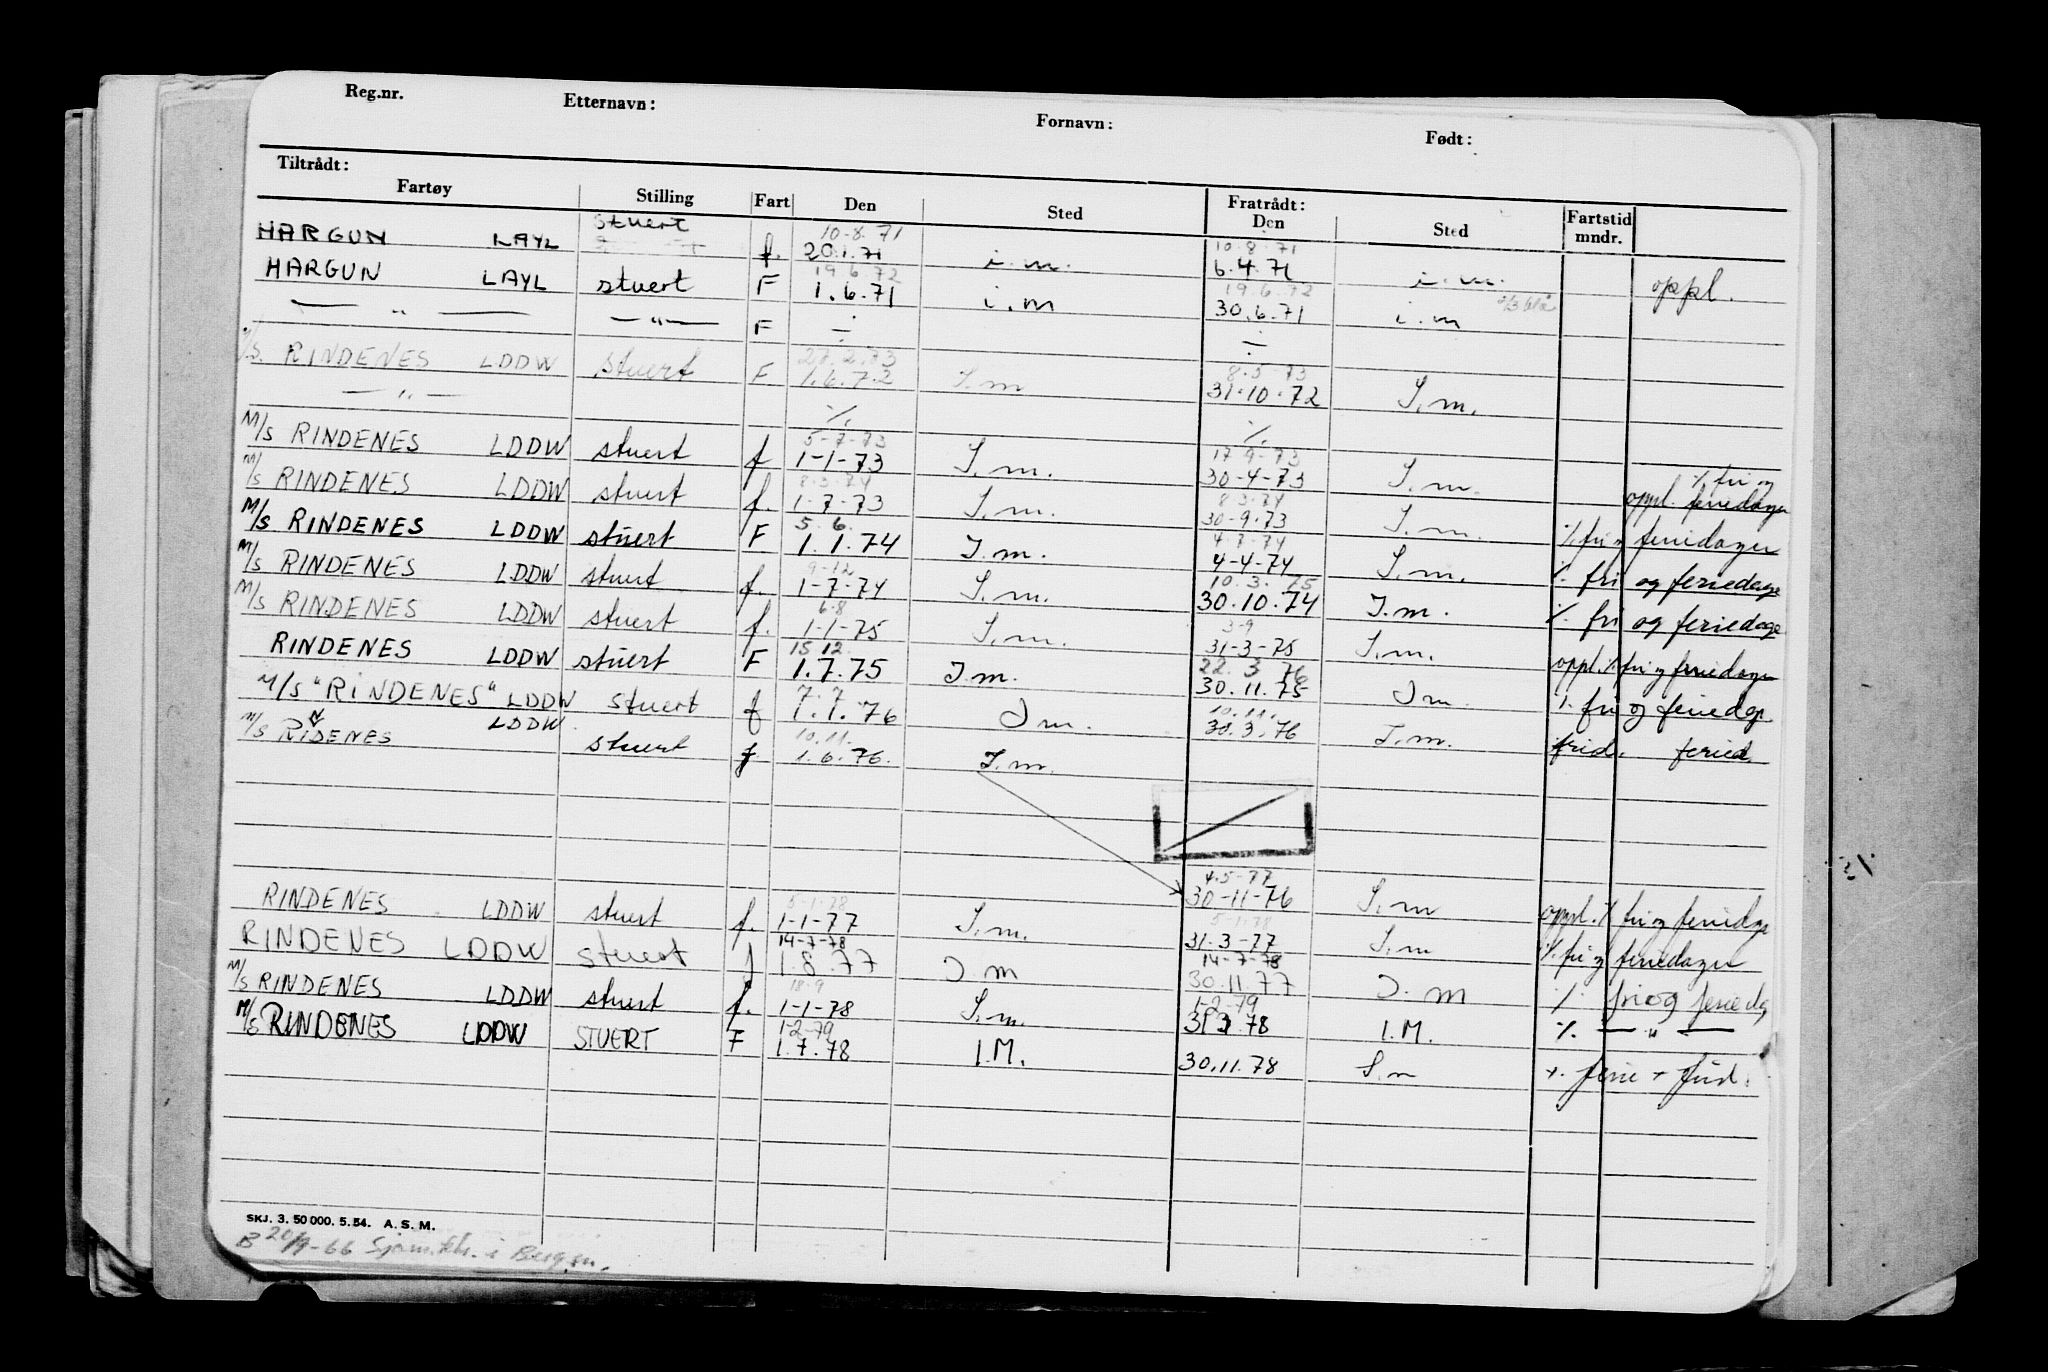 Reg.nr. Etternavn: Fornavn: Født:
Tiltrådt: Fratrådt:
Fartøy Stilling Fart Den Sted Den Sted Fartstid mndr.
10-8-71 10.8.71
HARGUN LAYL stuert f. 20.1.71 i.m. 6.4.71 i.m. oppl.
19.6.72 19.6.72
HARGUN LAYL stuert F 1.6.71 i.m 30.6.71 i.m
— " — — " — F ÷ ÷
27.2.73 8.5.73
M/S. RINDENES LDDW stuert F 1.6.72 I.m 31.10.72 I.m.
— " — ./. ./.
5-7-73 17-9-73
M/S RINDENES LDDW stuert f 1-1-73 I.m. 30-4-73 I.m. oppl. % fri og feriedager
8.3.74 8.3.74
M/s RINDENES LDDW stuert f. 1-7-73 I.m. 30-9-73 I.m. % fri og feriedager
5.6. 4-7-74
M/S RINDENES LDDW stuert F 1.1.74 I.m. 4-4-74 I.m. % fri og feriedage
9-12 10.3.75
M/s RINDENES LDDW stuert f. 1-7-74 I.m. 30.10.74 I.m. % fri og feriedage
6-8 3-9
M/s RINDENES LDDW stuert f. 1-1-75 I.m. 31-3-75 I.m. oppl. % fri og feriedager
15 12. 22.3 76
RINDENES LDDW stuert F 1.7.75 I.m. 30.11.75 I m. % fri og feriedag.
7.7. 10.11.
M/S "RINDENES" LDDW stuert f 1.1.76 I m. 30.3.76 I.m. frid. feried.
10.11.
M/S RINDENES LDDW. stuert f. 1.6.76. I.m.
4.5-77
30-11-76 I.m oppl. % fri og feriedage
5-1-78 5-1-78
RINDENES LDDW stuert f. 1-1-77 I.m. 31-3-77 I.m % fri og feriedager
14-7-78 14-7-78
RINDENES LDDW stuert f 1.8.77 I m 30.11.77 I. m % fri og feriedg
18-9 1-2-79
M/S RINDENES LDDW stuert f. 1-1-78 I.m. 31 3.78 I.M. % — " —
1-2-79
M/S RINDENES LDDW STUERT F 1.7.78 I.M. 30.11.78 I.m % ferie + frid.
SKJ. 3. 50 000. 5. 54. A. S. M.
B 20/9-66 Sjømktr. i Bergen.